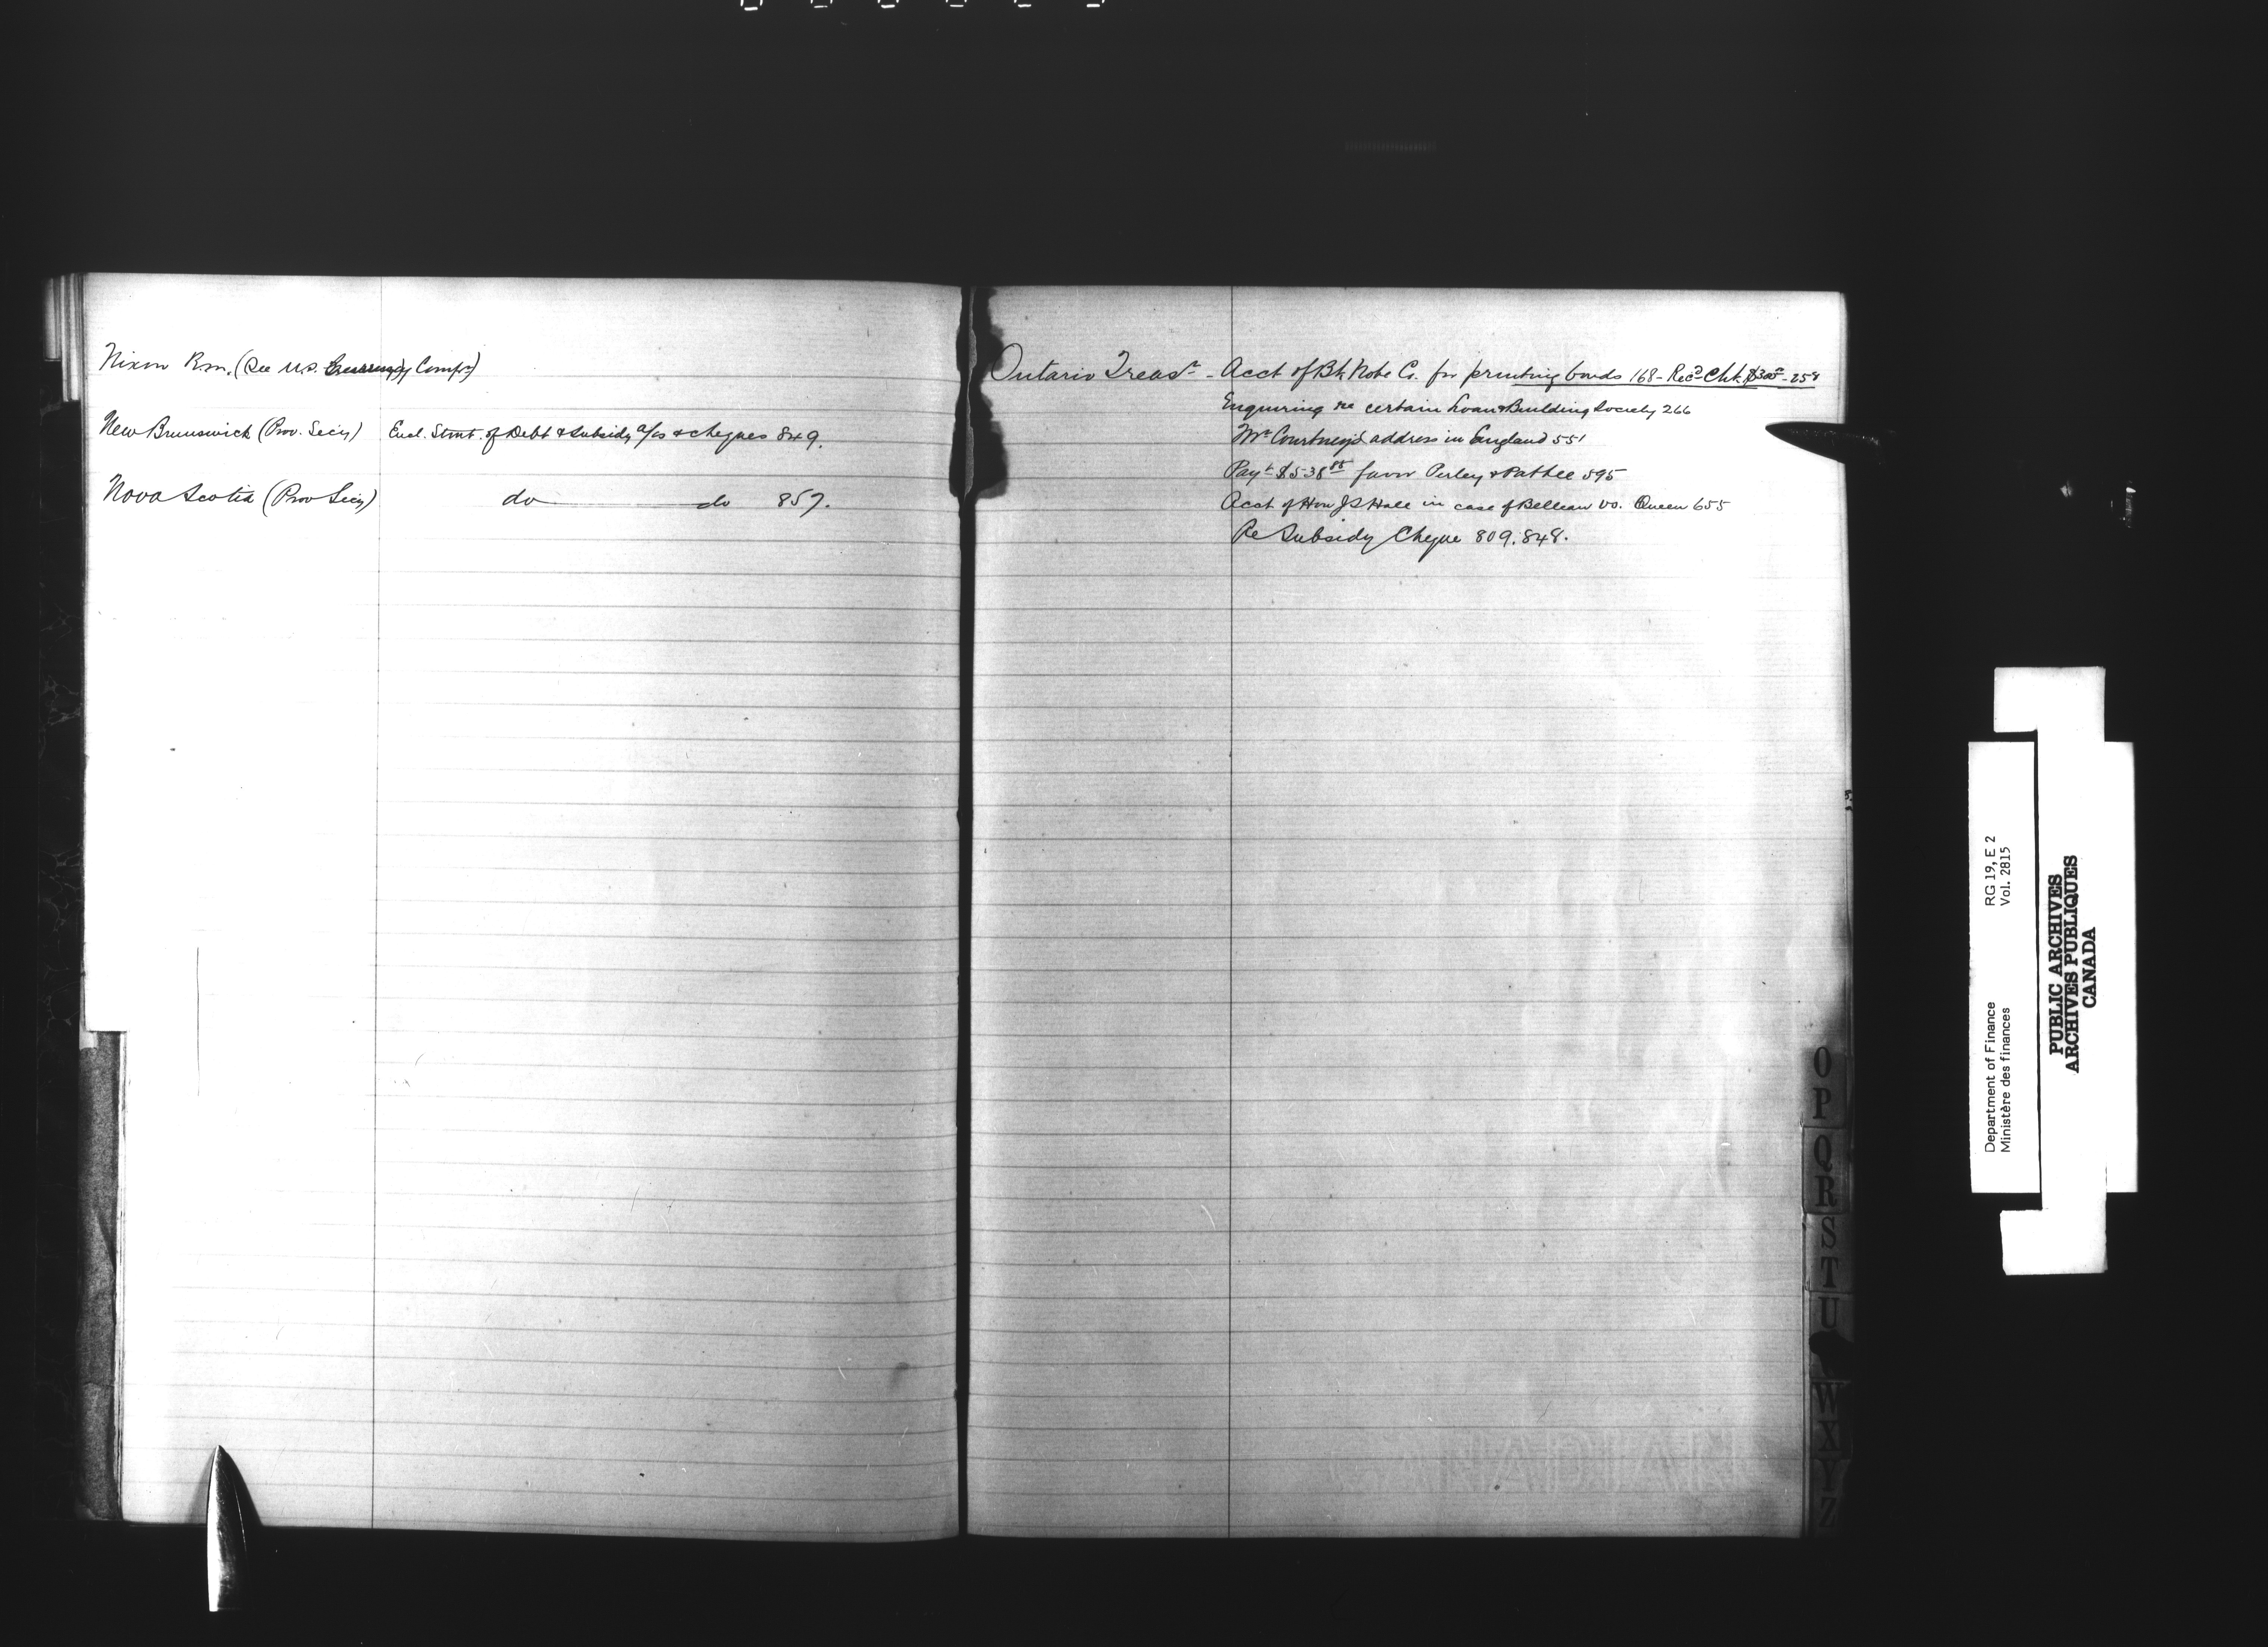 Nixon R.m. (See U.S. Currency Compr)
New Brunswick (Prov. Secy) Encl. Stmt. of Debt & Subsidy a/cs & cheques 849.
Nova Scotia (Prov Secy) do do 857.
Ontario Treasr - Acct of Bk Note Co. for printing bonds 168 - Recd Chk $300 - 258
Enquiring re certain Loan & Building Society 266
Mr Courtney's address in England 551
Payt $538 85 favor Perley & Pattee 595
Acct of Hon J S Hall in case of Belleau vs. Queen 655
Re Subsidy Cheque 809. 848.
O
P
Q
R
S
T
U
W
X
Y
Z
Department of Finance RG 19, E 2
Ministère des finances Vol. 2815
PUBLIC ARCHIVES
ARCHIVES PUBLIQUES
CANADA